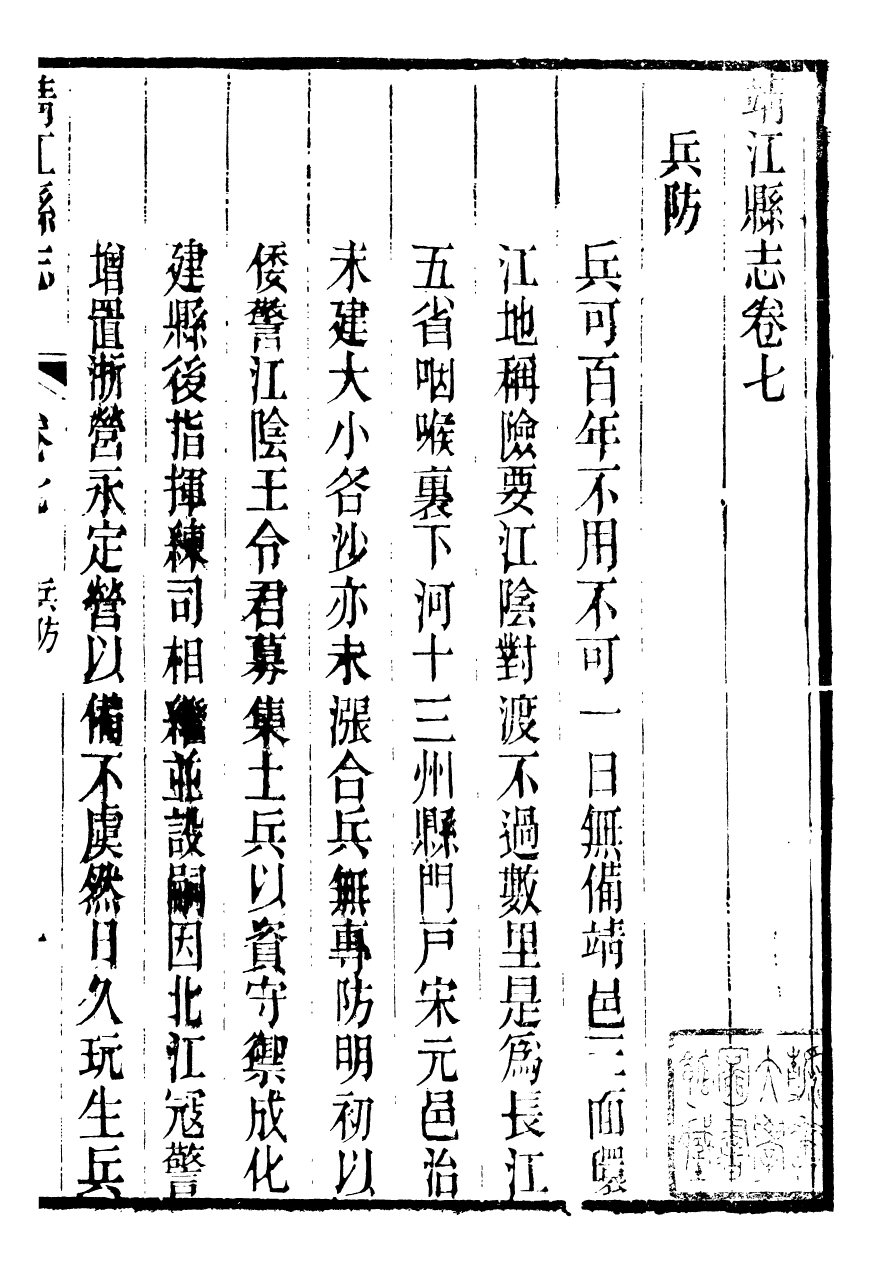 靖江縣志卷七
兵防
兵可百年不用不可一日無備靖邑三面環
江地稱險要江陰對渡不過數里是爲長江
五省咽喉裏下河十三州縣門戸宋元邑治
未建大小各沙亦未漲合兵無專防明初以
倭警江陰王令君募集土兵以資守禦成化
建縣後指揮練司相繼並設嗣因北江寇警
增置浙營永定營以備不虞然日久玩生兵
靖江縣志
卷七
兵防